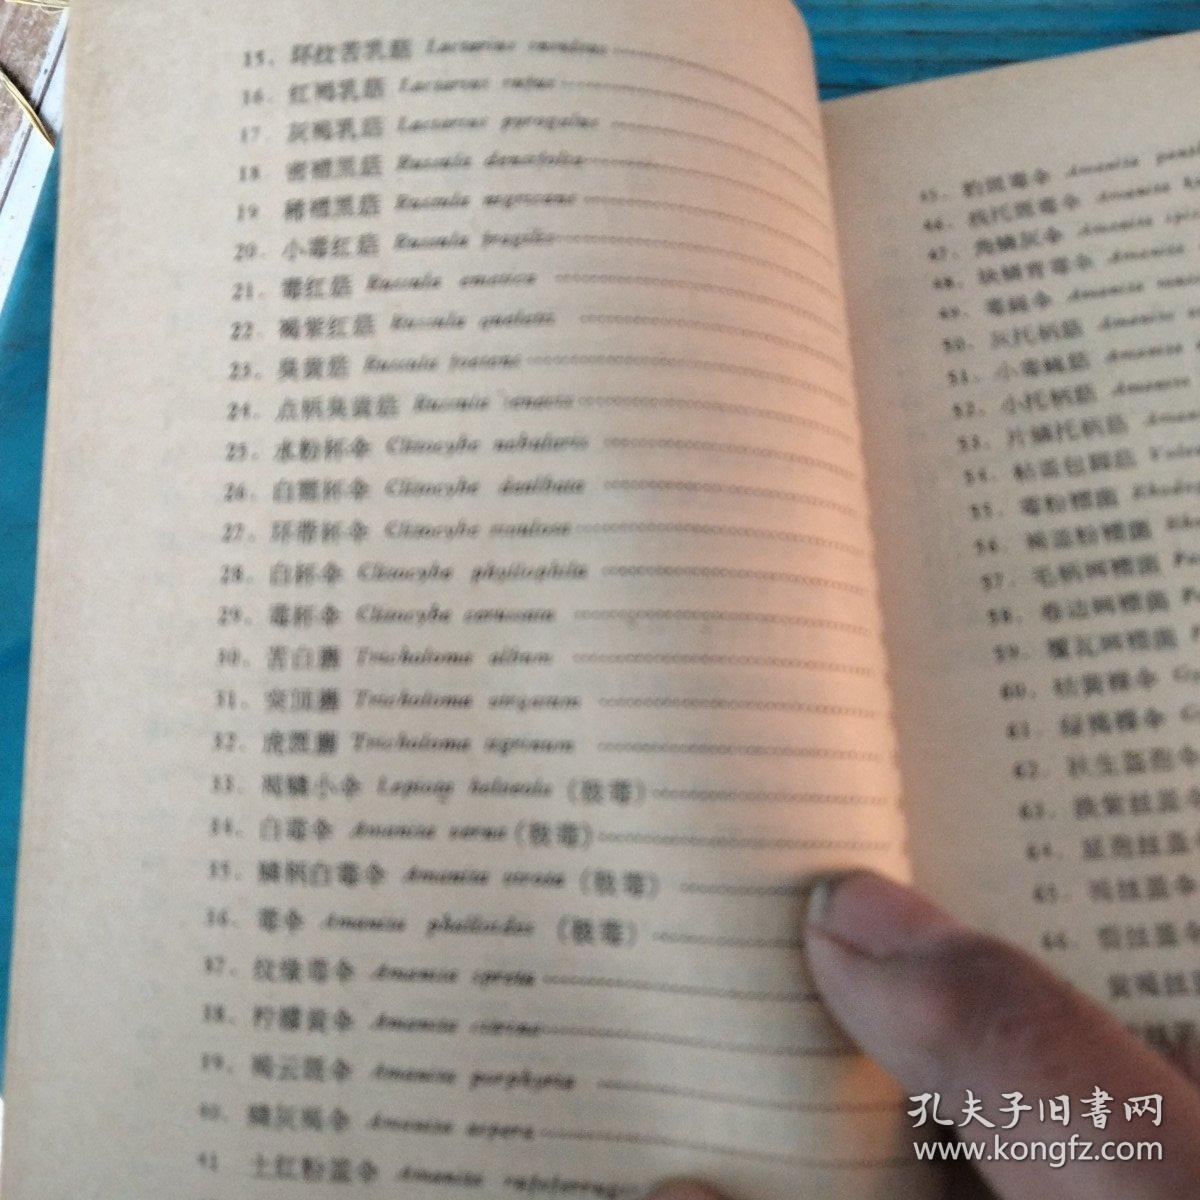 15. 环纹苦乳菇 Lactarius insulsus
16. 红褐乳菇 Lactarius rufus
17. 灰褐乳菇 Lactarius pyrogalus
18. 密褶黑菇 Russula densifolia
19. 稀褶黑菇 Russula nigricans
20. 小毒红菇 Russula fragilis
21. 毒红菇 Russula emetica
22. 褐紫红菇 Russula
23. 臭黄菇 Russula foetens
24. 点柄臭黄菇 Russula
25. 水粉杯伞 Clitocybe nebularis
26. 白霜杯伞 Clitocybe dealbata
27. 环带杯伞 Clitocybe rivulosa
28. 白杯伞 Clitocybe phyllophila
29. 毒杯伞 Clitocybe cerussata
30. 苦白蘑 Tricholoma album
31. 突顶蘑 Tricholoma virgatum
32. 虎斑蘑 Tricholoma tigrinum
33. 褐鳞小伞 Lepiota helveola（极毒）
34. 白毒伞 Amanita verna（极毒）
35. 鳞柄白毒伞 Amanita virosa（极毒）
36. 毒伞 Amanita phalloides（极毒）
37. 纹缘毒伞 Amanita spreta
38. 柠檬黄伞 Amanita citrina
39. 褐云斑伞 Amanita porphyria
40. 鳞灰褐伞 Amanita aspera
41 土红粉盖伞 Amanita rufoferrugi
45. 豹斑毒伞 Amanita panth
46. 残托斑毒伞 Amanita
47. 角鳞灰伞 Amanita spi
48. 块鳞青毒伞 Amanita
49. 毒蝇伞 Amanita mus
50. 灰托柄菇 Amanita
51. 小毒蝇菇 Amanita
52. 小托柄菇 Amanita
53. 片鳞托柄菇 Amanita
54. 粘盖包脚菇 Volva
55. 毒粉褶菌 Rhodop
56. 褐盖粉褶菌 Rho
57. 毛柄网褶菌 Pa
58. 卷边网褶菌 P
59. 覆瓦网褶菌
60. 桔黄裸伞 Gy
61. 绿褐裸伞 G
62. 秋生盔孢伞
63. 掷紫丝盖伞
64. 星孢丝盖
65. 褐丝盖伞
66. 裂丝盖伞
黄褐丝
孔夫子旧书网
www.kongfz.com